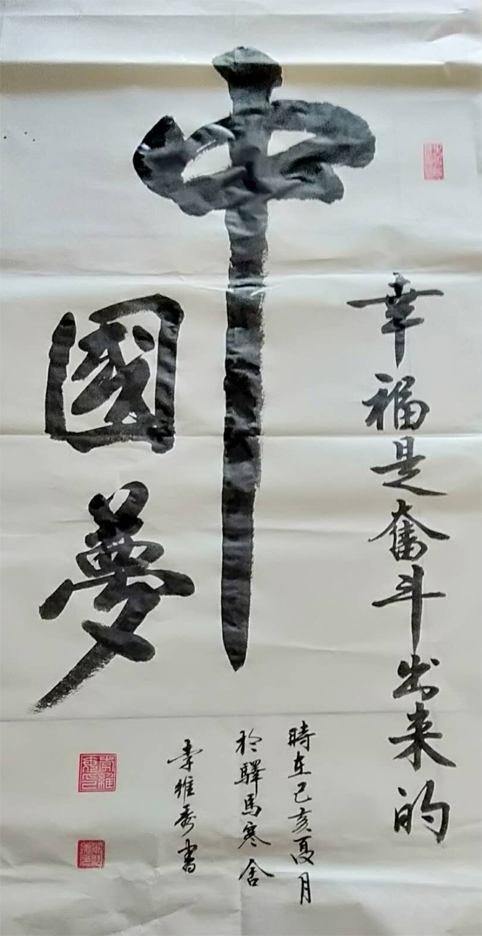 中國夢
幸福是奮斗出来的
時在己亥夏月
於驛馬寒舍
李維秀書